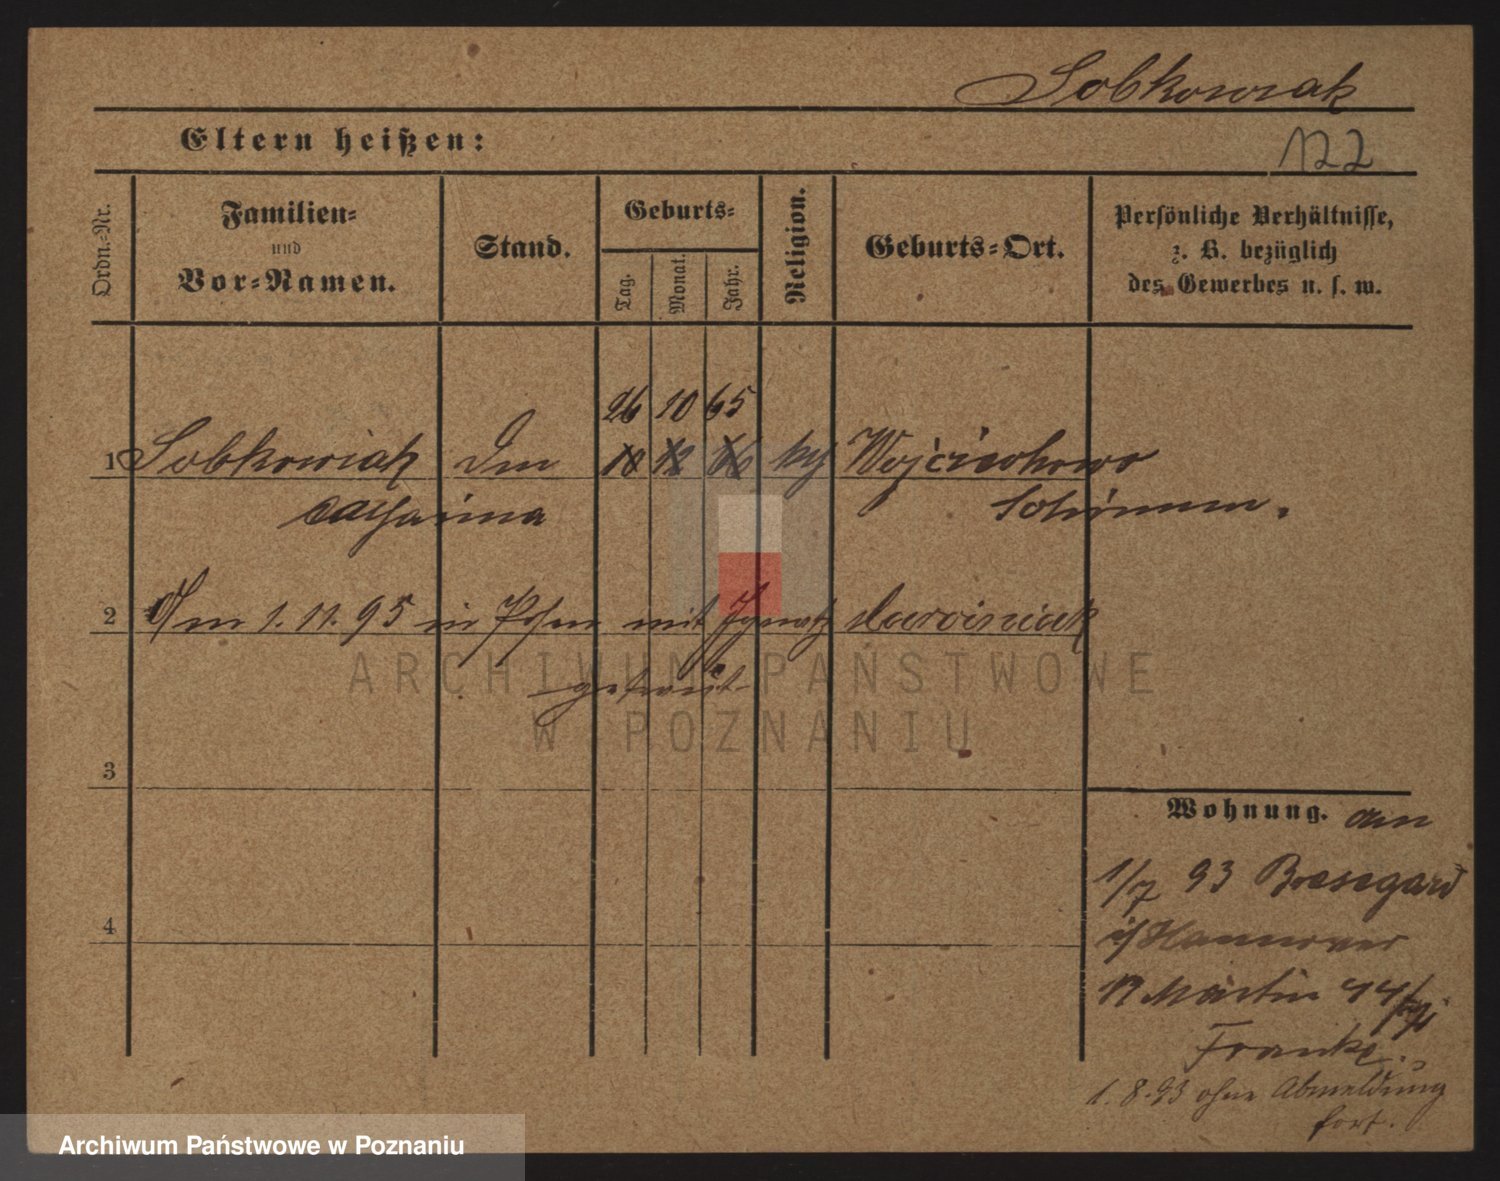 Sobkowiak
Eltern heißen:
122
Ordn.-Nr.
Familien-
und
Vor-Namen.
Stand.
Geburts-
Tag.
Monat.
Jahr.
Religion.
Geburts-Ort.
Persönliche Verhältnisse,
z. B. bezüglich
des Gewerbes u. s. w.
26 10 65
1 Sobkowiak 18 12 66 Wojciechowo
Catharina Schrimm.
2 Am 1. 11. 95 in Posen mit Ignatz
getraut
ARCHIWUM PAŃSTWOWE
W POZNANIU
3
Wohnung. am
1/7 93 Bresegard
i/ Hannover
Martin 44/
Franke.
4
1. 8. 93 ohne Abmeldung
fort.
Archiwum Państwowe w Poznaniu